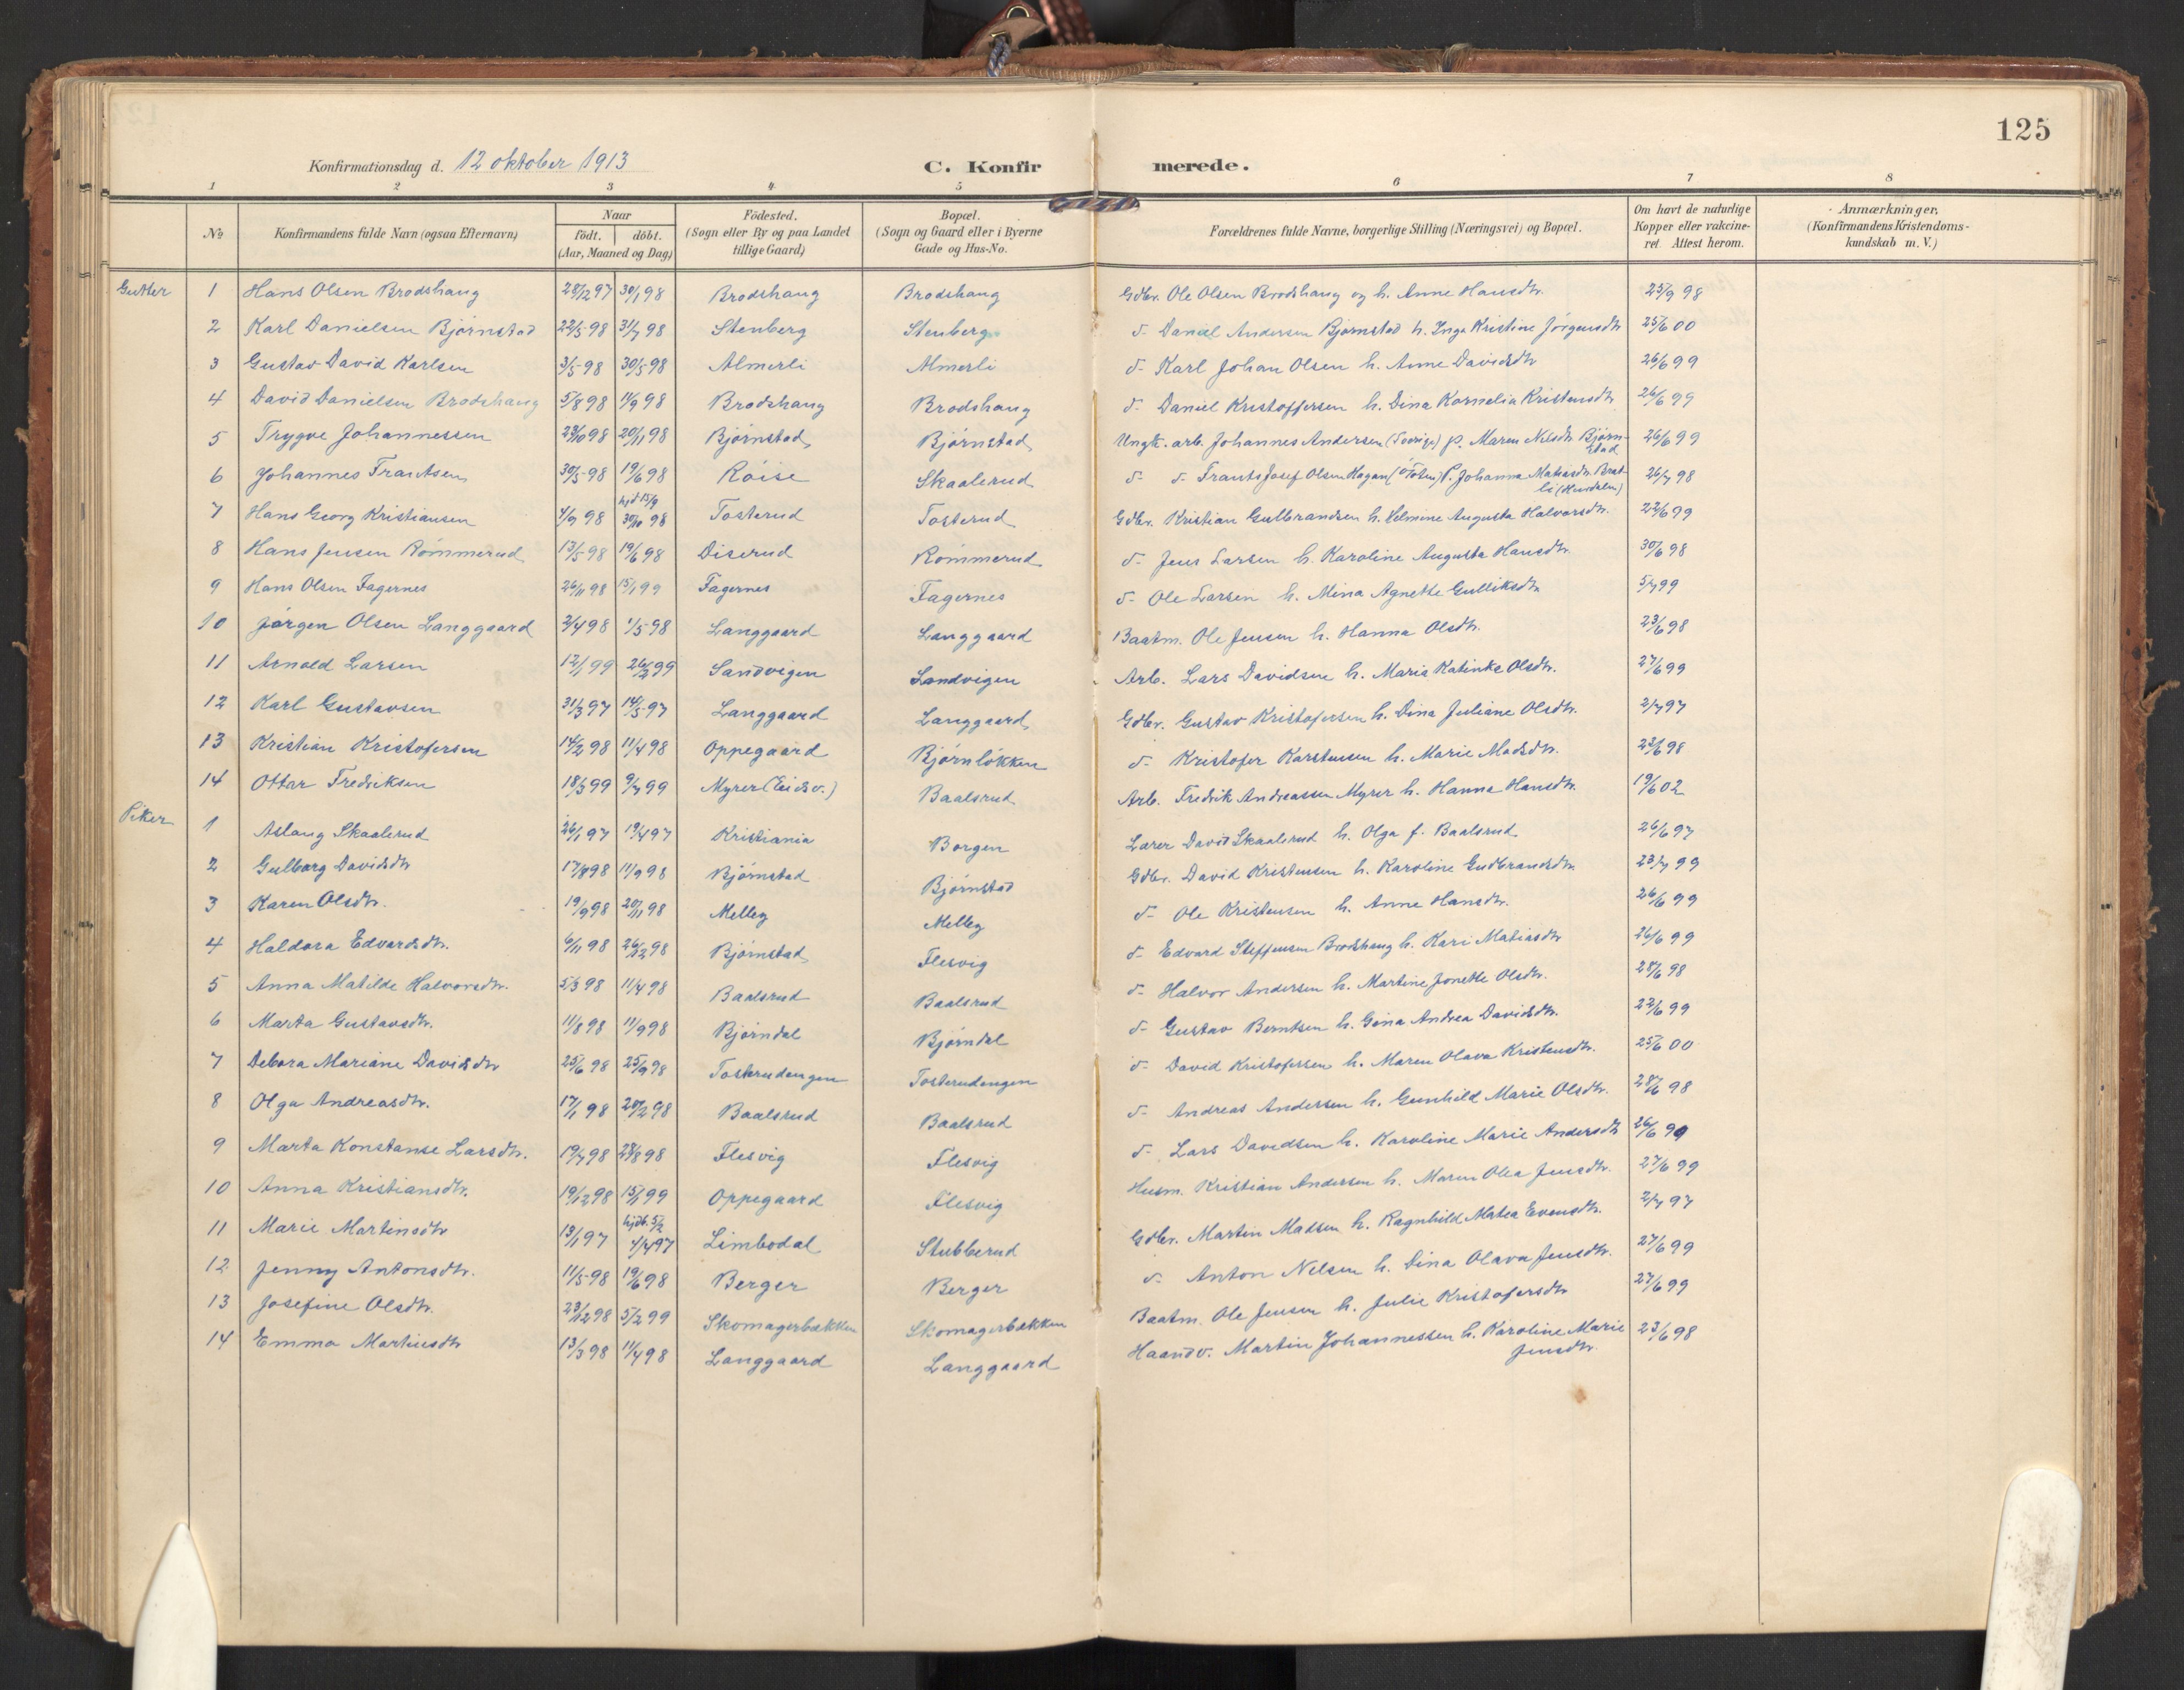 125
Konfirmationsdag d. 12 oktober 1913 C. Konfirmerede.
1 2 3 4 5 6 7 8
No Konfirmandens fulde Navn (ogsaa Efternavn) Naar födt. döbt. (Aar, Maaned og Dag) Födested. (Sogn eller By og paa Landet tillige Gaard) Bopæl. (Sogn og Gaard eller i Byerne Gade og Hus-No. Forældrenes fulde Navne, borgerlige Stilling (Næringsvei) og Bopæl. Om havt de naturlige Kopper eller vakcineret. Attest herom. Anmærkninger, (Konfirmandens Kristendomskundskab m. V.)
Gutter 1 Hans Olsen Brodshaug 22/12 97 30/1 98 Brodshaug Brodshaug Gdbr. Ole Olsen Brodshaug og h. Anne Hansdtr. 25/9 98
2 Karl Danielsen Bjørnstad 22/5 98 31/7 98 Stenberg Stenberg d- Daniel Andersen Bjørnstad h. Inga Kristine Jörgensdtr 25/6 00
3 Gustav David Karlsen 3/5 98 30/5 98 Almerli Almerli d- Karl Johan Olsen h. Anne Davidsdtr 26/6 99
4 David Danielsen Brodshaug 5/8 98 11/9 98 Brodshaug Brodshaug d- Daniel Kristoffersen h. Dina Kornelia Kristensdtr 26/6 99
5 Trygve Johannessen 23/10 98 20/11 98 Bjørnstad Bjørnstad Ungk. arb. Johannes Andersen (Sverige) p. Maren Nilsdtr Bjørnstad 26/6 99
6 Johannes Frantsen 30/5 98 19/6 98 Röise Skaalerud d- d- Frants Josef Olsen Hagan (ö Toten) P. Johanna Matiasdtr. Bratli (Hurdalen) 26/7 98
7 Hans Georg Kristiansen 4/9 98 hjd 15/9 30/10 98 Tosterud Tosterud Gdbr. Kristian Gulbrandsen h. Helmine Augusta Halvorsdtr. 22/6 99
8 Hans Jensen Römmerud 13/5 98 19/6 98 Diserud Römmerud d- Jens Larsen h. Karoline Augusta Hansdtr. 30/6 98
9 Hans Olsen Fagernes 26/11 98 15/1 99 Fagernes Fagernes d- Ole Larsen h. Mina Agnette Gulliksdtr 5/7 99
10 Jørgen Olsen Langgaard 2/4 98 1/5 98 Langgaard Langgaard Baatm. Ole Jensen h. Hanna Olsdtr. 23/6 98
11 Arnold Larsen 12/1 99 26/2 99 Sandvigen Sandvigen Arb. Lars Davidsen h. Maria Katinka Olsdtr. 27/6 99
12 Karl Gustavsen 31/3 97 14/5 97 Langgaard Langgaard Gdbr. Gustav Kristofersen h. Dina Juliane Olsdtr. 2/7 97
13 Kristian Kristofersen 14/2 98 11/4 98 Oppegaard Bjørnløkken d- Kristofer Karstensen h. Marie Madsdtr. 23/6 98
14 Ottar Fredriksen 18/3 99 9/7 99 Myrer (Eidsv.) Baalsrud Arb. Fredrik Andreassen Myrer h. Hanna Hansdtr. 19/6 02
Piker 1 Aslaug Skaalerud 26/1 97 19/4 97 Kristiania Borgen Lærer David Skaalerud h. Olga f. Baalsrud 26/6 97
2 Gulborg Davidsdtr 17/8 98 11/9 98 Bjørnstad Bjørnstad Gdbr. David Kristensen h. Karoline Gudbrandsdtr. 23/7 99
3 Karen Olsdtr. 19/9 98 20/11 98 Melleg Melleg d- Ole Kristensen h. Anne Hansdtr. 26/6 99
4 Haldora Edvardsdtr. 6/11 98 26/12 98 Bjørnstad Flesvig d- Edvard Steffensen Brodshaug h. Kari Matiasdtr 26/6 99
5 Anna Matilde Halvorsdtr. 5/3 98 11/4 98 Baalsrud Baalsrud d- Halvor Andersen h. Martine Jonette Olsdtr. 28/6 98
6 Marta Gustavsdtr. 11/8 98 11/9 98 Bjørndal Bjørndal d- Gustav Berntsen h. Gina Andrea Davidsdtr. 22/6 99
7 Debora Mariane Davidsdtr 25/6 98 25/9 98 Tosterudengen Tosterudengen d- David Kristofersen h. Maren Olava Kristensdtr. 25/6 00
8 Olga Andreasdtr. 17/1 98 20/2 98 Baalsrud Baalsrud d- Andreas Andersen h. Gunhild Marie Olsdtr. 28/6 98
9 Marta Konstanse Larsdtr. 19/7 98 28/8 98 Flesvig Flesvig d- Lars Davidsen h. Karoline Marie Andersdtr 26/6 99
10 Anna Kristiansdtr. 19/12 98 15/1 99 Oppegaard Flesvig Husm. Kristian Andersen h. Maren Olea Jensdtr. 27/6 99
11 Marie Martinsdtr 13/1 97 hjdt. 5/2 4/4 97 Limbodal Stubberud Gdbr. Martin Madsen h. Ragnhild Matea Evensdtr. 2/7 97
12 Jenny Antonsdtr. 11/5 98 19/6 98 Berger Berger d- Anton Nilsen h. Dina Olava Jensdtr. 27/6 99
13 Josefine Olsdtr. 23/12 98 5/2 99 Skomagerbækken Skomagerbækken Baatm. Ole Jensen h. Julie Kristofersdtr 27/6 99
14 Emma Martinsdtr 13/3 98 11/4 98 Langgaard Langgaard Haandv. Martin Johannessen h. Karoline Marie Jensdtr. 23/6 98